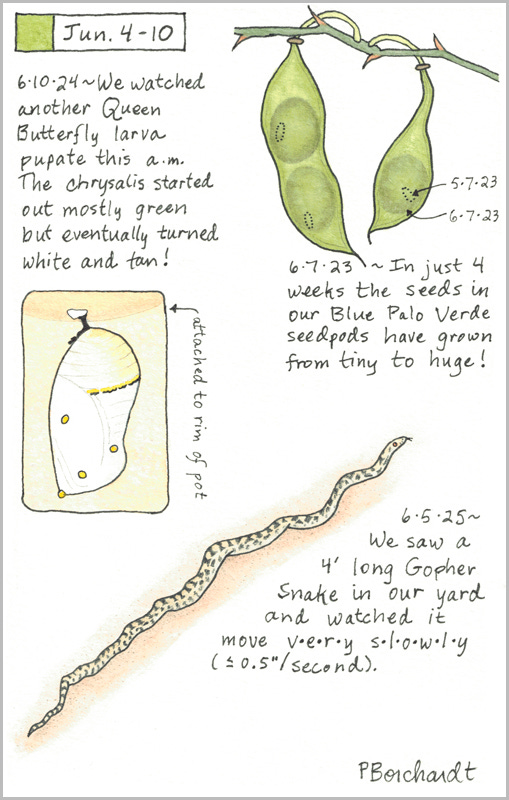 Jun. 4-10
6·10·24~We watched
another Queen
Butterfly larva
pupate this a.m.
The chrysalis started
out mostly green
but eventually turned
white and tan!
attached to rim of pot
5·7·23
6·7·23
6·7·23 ~ In just 4
weeks the seeds in
our Blue Palo Verde
seedpods have grown
from tiny to huge!
6·5·25~
We saw a
4' long Gopher
Snake in our yard
and watched it
move v·e·r·y s·l·o·w·l·y
(≤0.5"/second).
PBorchardt